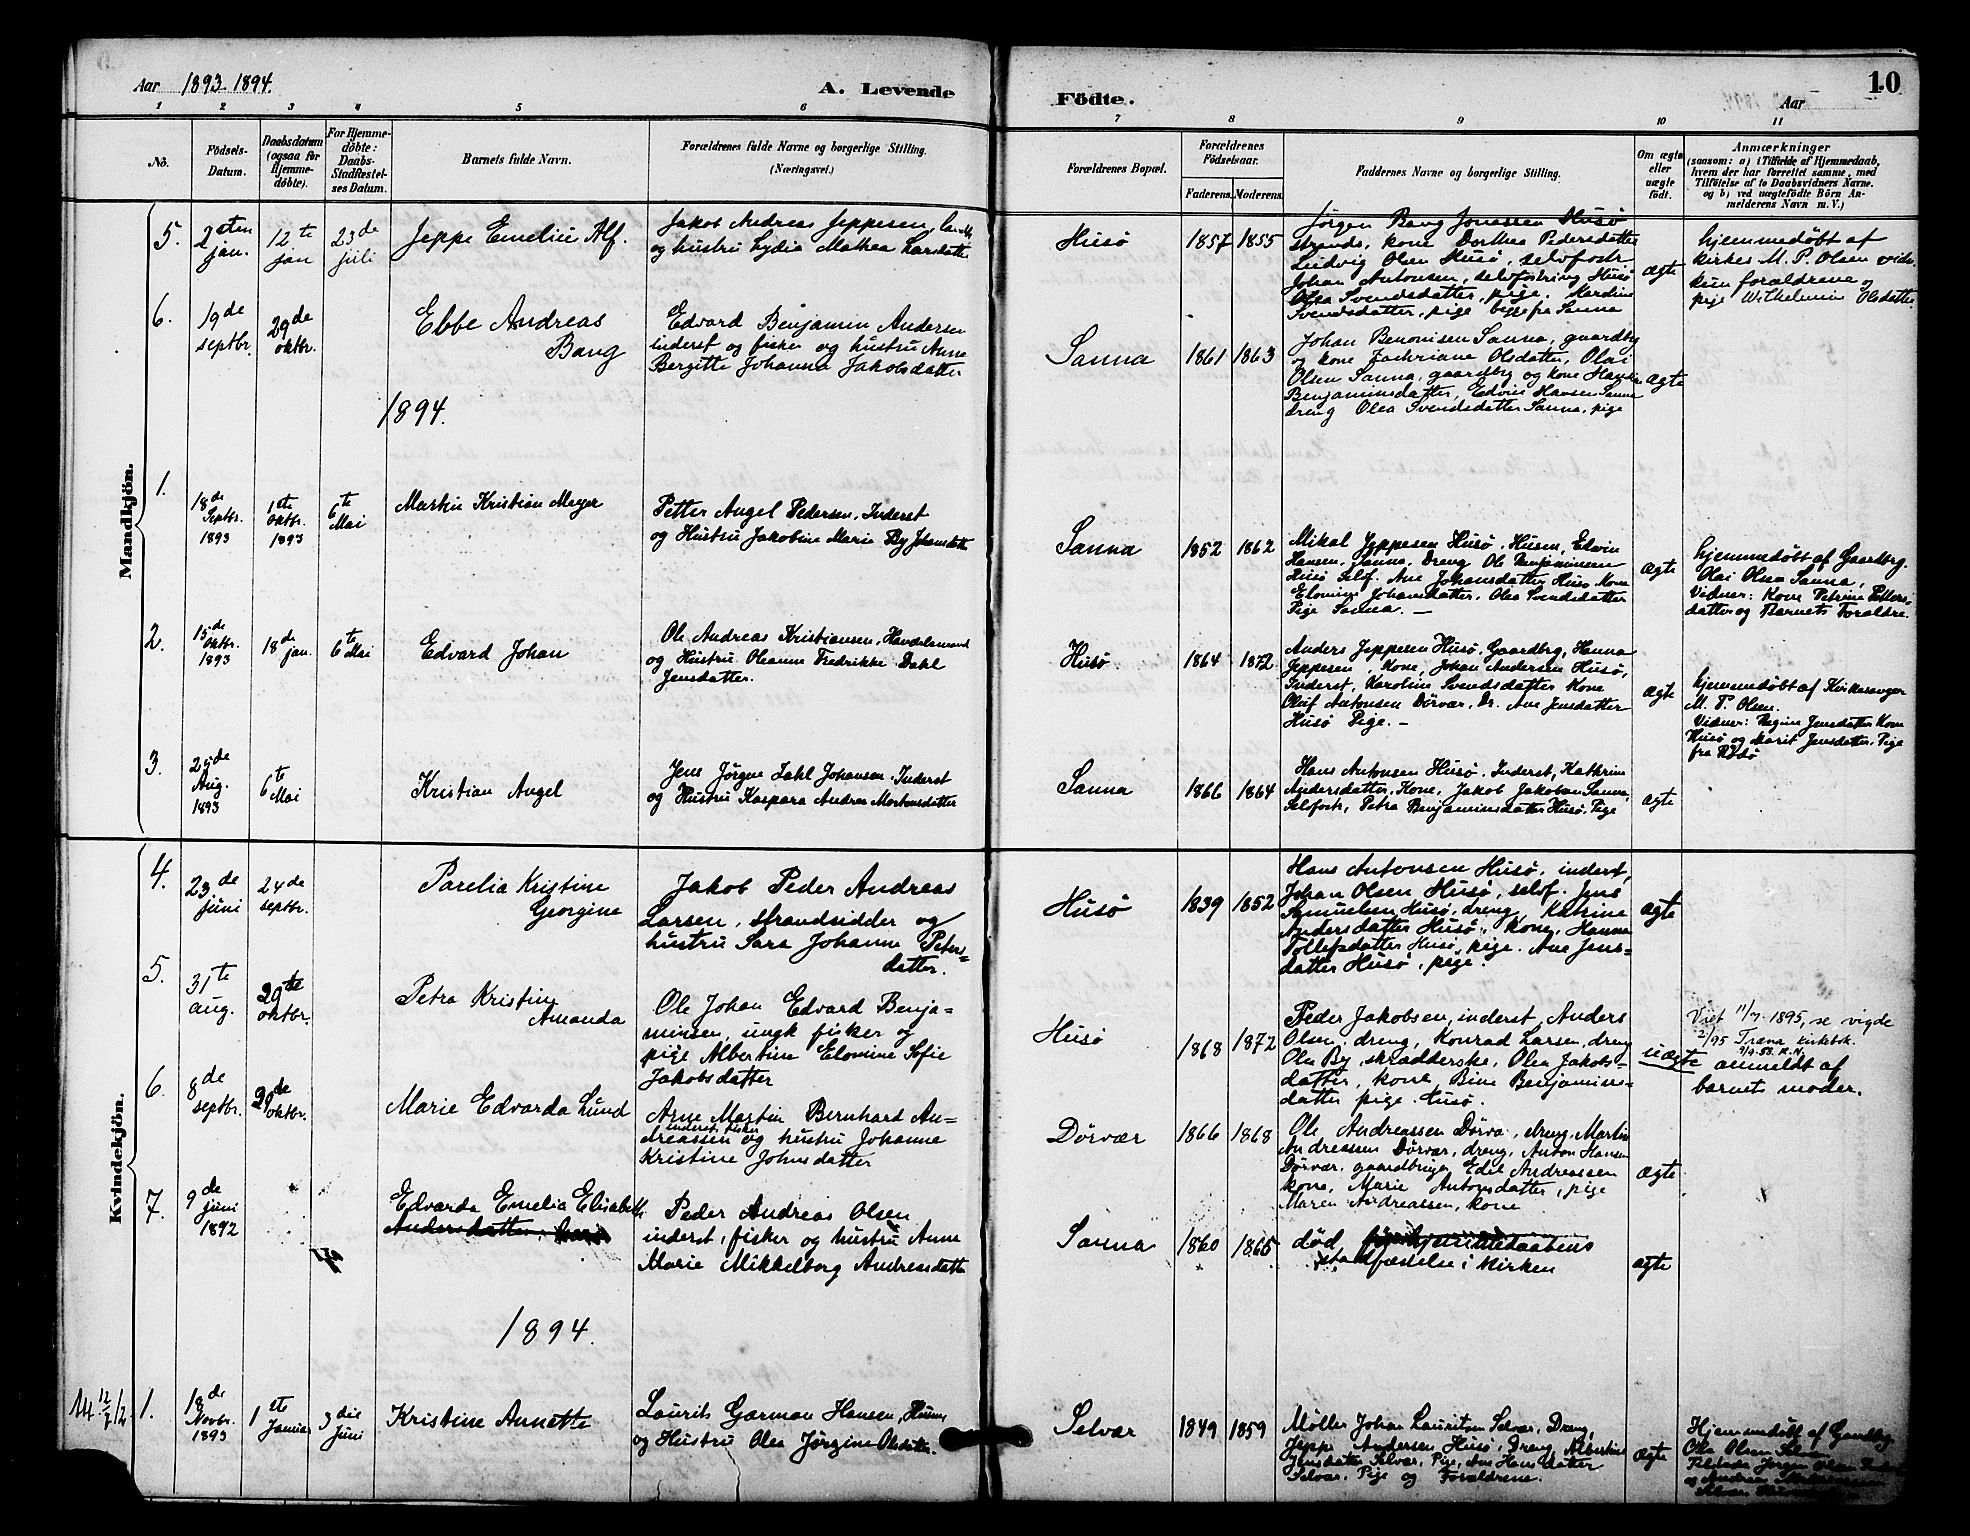 Aar 1893. 1894.
A. Levende
Födte.
Aar
10
1 2 3 4 5 6 7 8 9 10 11
No.
Födsels-
Datum.
Daabsdatum
(ogsaa for
Hjemme-
döbte).
For Hjemme-
döbte:
Daabs-
Stadfæstel-
ses Datum.
Barnets fulde Navn.
Forældrenes fulde Navne og borgerlige Stilling.
(Næringsvei.)
Forældrenes Bopæl.
Forældrenes
Födselsaar.
Faderens. Moderens.
Faddernes Navne og borgerlige Stilling.
Om ægte
eller
uægte
födt.
Anmærkninger
(saasom: a) i Tilfælde af Hjemmedaab,
hvem der har forrettet samme, med
Tilföielse af to Daabsvidners Navne.
og b) ved uægtefödte Börn An-
melderens Navn m. V.)
Mandkjön.
5.
2den
jan.
12te
jan
23de
juli
Jeppe Emeliu Alf.
Jakob Andreas Jeppesen,
og hustru Lydia Mathea Larsdatter
Husö
1857 1855
Jörgen Bang Jonassen Husö
strands, kone Dorthea Pedersdatter
Ludvig Olsen Husö, selvfostr
Johan Antonsen, selvfostring Husö
Olea Svendsdatter, pige. Kardine
Svendsdatter, pige begge fra Sanna
ægte
hjemmedøbt af
kirkes M. P. Olsen vidn.
kun forældrene og
pige Wilhelmin Olsdatter
6.
19de
septbr.
29de
oktbr.
Ebbe Andreas
Bang
Edvard Benjamin Andersen
inderst og fisker og hustru Anne
Bergitte Johanna Jakobsdatter
Sanna
1861 1863
Johan Benonisen Sanna, gaardbg
og kone Zachriane Olsdatter, Olai
Olsen Sanna, gaardbg og kone
Benjaminsdatter, Edvin Hansen Sanna
dreng Olea Svendsdatter Sanna, pige
ægte
1894.
1.
18de
Septbr.
1893
1ste
oktbr.
1893
6te
Mai
Martin Kristian Meyer
Petter Angel Pedersen, Inderst
og Hustru Jakobine Marie By Johansdatter
Sanna
1852 1862
Mikal Jeppesen Husö, Husm, Edvin
Hansen, Sanna, Dreng Ole Benjaminsen
Husö Selvf. Ane Johansdatter Husö Kone
Elomine Johansdatter, Olea Svendsdatter
Pige Sanna. —
ægte
hjemmedøbt af Gaardbrg.
Olai Olsen Sanna,
Vidner: Kone Petrine Petters-
datter og Barnets Forældre.
2.
15de
oktbr.
1893
18de
jan.
6te
Mai
Edvard Johan
Ole Andreas Kristiansen, Handelsmand
og Hustru Oleanne Fredrikke Dahl
Jensdatter.
Husö
1864 1872
Anders Jeppesen Husö, Gaardbrg, Hanna
Jeppesen, Kone, Johan Andersen Husö,
Inderst, Karoline Svendsdatter Kone
Oluf Antonsen Dörvær, Dr. Ane Jensdatter
Husö Pige. —
ægte
hjemmedøbt af Kirkesanger
M. P. Olsen.
Vidner: Regine Jensdatter Kone
Husö og Marit Jensdatter, Pige
fra Rödö
3.
de
Aug.
1893
6te
Mai
Kristian Angel
Jens Jörgen Zahl Johansen, Inderst
og Hustru Kaspara Andrea Mortensdatter
Sanna
1866 1864
Hans Antonsen Husö, Inderst, Kathrin
Andersdatter, Kone, Jakob Jakobsen Sanna,
Selvfostr, Petra Benjaminsdatter Husö, Pige
ægte
Kvindekjön.
4.
23de
juni
24de
septbr.
Parelia Kristine
Georgine
Jakob Peder Andreas
Larsen, strandsidder og
hustru Sara Johanne Peters-
datter.
Husö
1839 1852
Hans Antonsen Husö, inderst,
Johan Olsen Husö, selvf. Jens
Samuelsen Husö, dreng, Katrine
Andersdatter Husö, kone, Hanna
Tollefsdatter Husö, pige. Ane Jens-
datter Husö, pige.
ægte
5.
31te
aug.
29de
oktbr.
Petra Kristine
Amanda
Ole Johan Edvard Benja-
minsen, ungk fisker og
pige Albertine Elomine Sofie
Jakobsdatter
Husö
1868 1872
Peder Jakobsen, inderst, Anders
Olsen, dreng, Konrad Larsen, dreng
Ole By, skrædderske, Olea Jakobs-
datter, kone, Bine Benjamins-
datter pige. Husö.
uægte
Viet 11/7. 1895, se vigde
2/95 Træna Kirkebok.
9/9-53. R.N.
anmeldt af
barnets moder.
6.
8de
septbr.
29de
oktbr.
Marie Edvarda Lund
Arne Martin Bernhard An-
inderst fisker
dreassen og hustru Johanna
Kristine Johnsdatter
Dörvær
1866 1868
Ole Andreassen Dörvæ, dreng, Martin
Andreassen Dörvær, dreng, Anton Hansen
Dörvær, gaardbruger Edel Andreassen
kone, Marie Antonsdatter, pige
Maren Andreassen, kone
ægte
7.
9de
juni
1892
Edvarda Emelia Elisabeth
Andersdatter.
Peder Andreas Olsen
inderst, fisker og hustru Anne
Marie Mikkelborg Andreasdatter
Sanna
1860 1865
död för hjemmedaabens
stadfæstelse i kirken
ægte
1894.
14 12/7 12.
1.
18de
Novbr.
1893
1ste
Januar
3die
Juni
Kristine Annette
Laurits Garman Hansen, Husm
og Hustru Olea Jörgine Olsdatter.
Selvær
1849 1859
Møller Johan Lauritsen Selvær, Dreng,
Jeppe Andersen Husö, Dreng, Albertine
Jensdatter Selvær, Pige, Ane Hans datter
Selvær, Pige og Forældrene.
ægte
Hjemmedøbt af Gaardbg
Ole Olsen Selvær